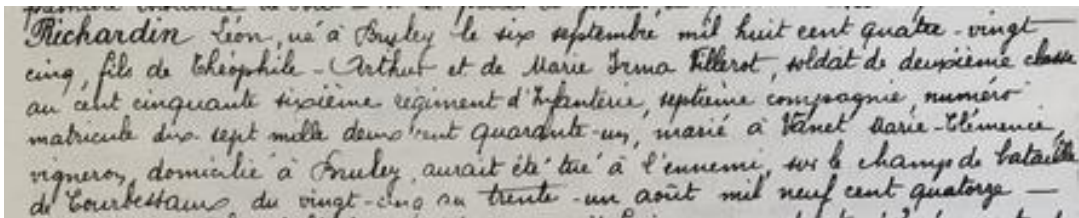 Richardin Léon, né à Bruley le six septembre mil huit cent quatre-vingt
cinq, fils de Théophile-Arthur et de Marie Irma Fillerot, soldat de deuxième classe
au cent cinquante sixième régiment d'Infanterie, septième compagnie, numéro
matricule dix-sept mille deux cent quarante-un, marié à Vanet Marie-Clémence,
vigneron, domicilié à Bruley, aurait été tué à l'ennemi, sur le champs de bataille
de Courbessaux du vingt-cinq au trente-un août mil neuf cent quatorze —